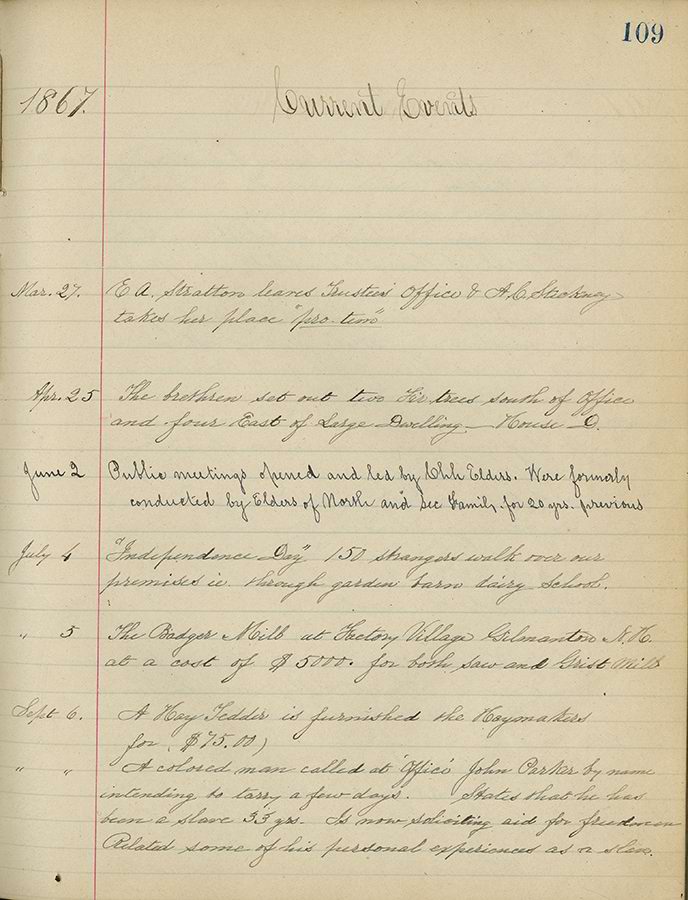 109
1867. Current Events
Mar. 27. E A. Stratton leaves Trustees Office & A. C. Stickney
takes her place "pro-tem"
Apr. 25 The brethren set out two Fir trees south of Office
and four East of Large Dwelling - House D.
June 2 Public meetings opened and led by Chh Elders. Were formerly
conducted by Elders of North and Sec Family. for 20 yrs. previous
July 4 "Independence Day" 150 strangers walk over our
premises ie. through garden barn dairy school.
" 5 The Badger Mill at Factory Village Gilmanton N. H.
at a cost of $5000. for both saw and Grist Mill
Sept 6. A Hay Tedder is furnished the Haymakers
for ($75.00)
" " A colored man called at 'Office' John Parker by name
intending to tarry a few days. States that he has
been a slave 33 yrs. Is now soliciting aid for freedmen
Related some of his personal experiences as a slave.